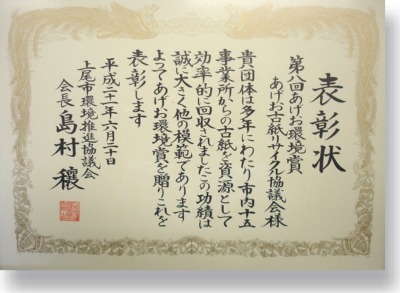 表彰状
第八回あげお環境賞
あげお古紙リサイクル協議会様
貴団体は多年にわたり市内十五
事業所からの古紙を資源として
効率的に回収されましたこの功績は
誠に大きく他の模範であります
よってあげお環境賞を贈りこれを
表彰します
平成二十一年六月二十日
上尾市環境推進協議会
会長 島村 穰